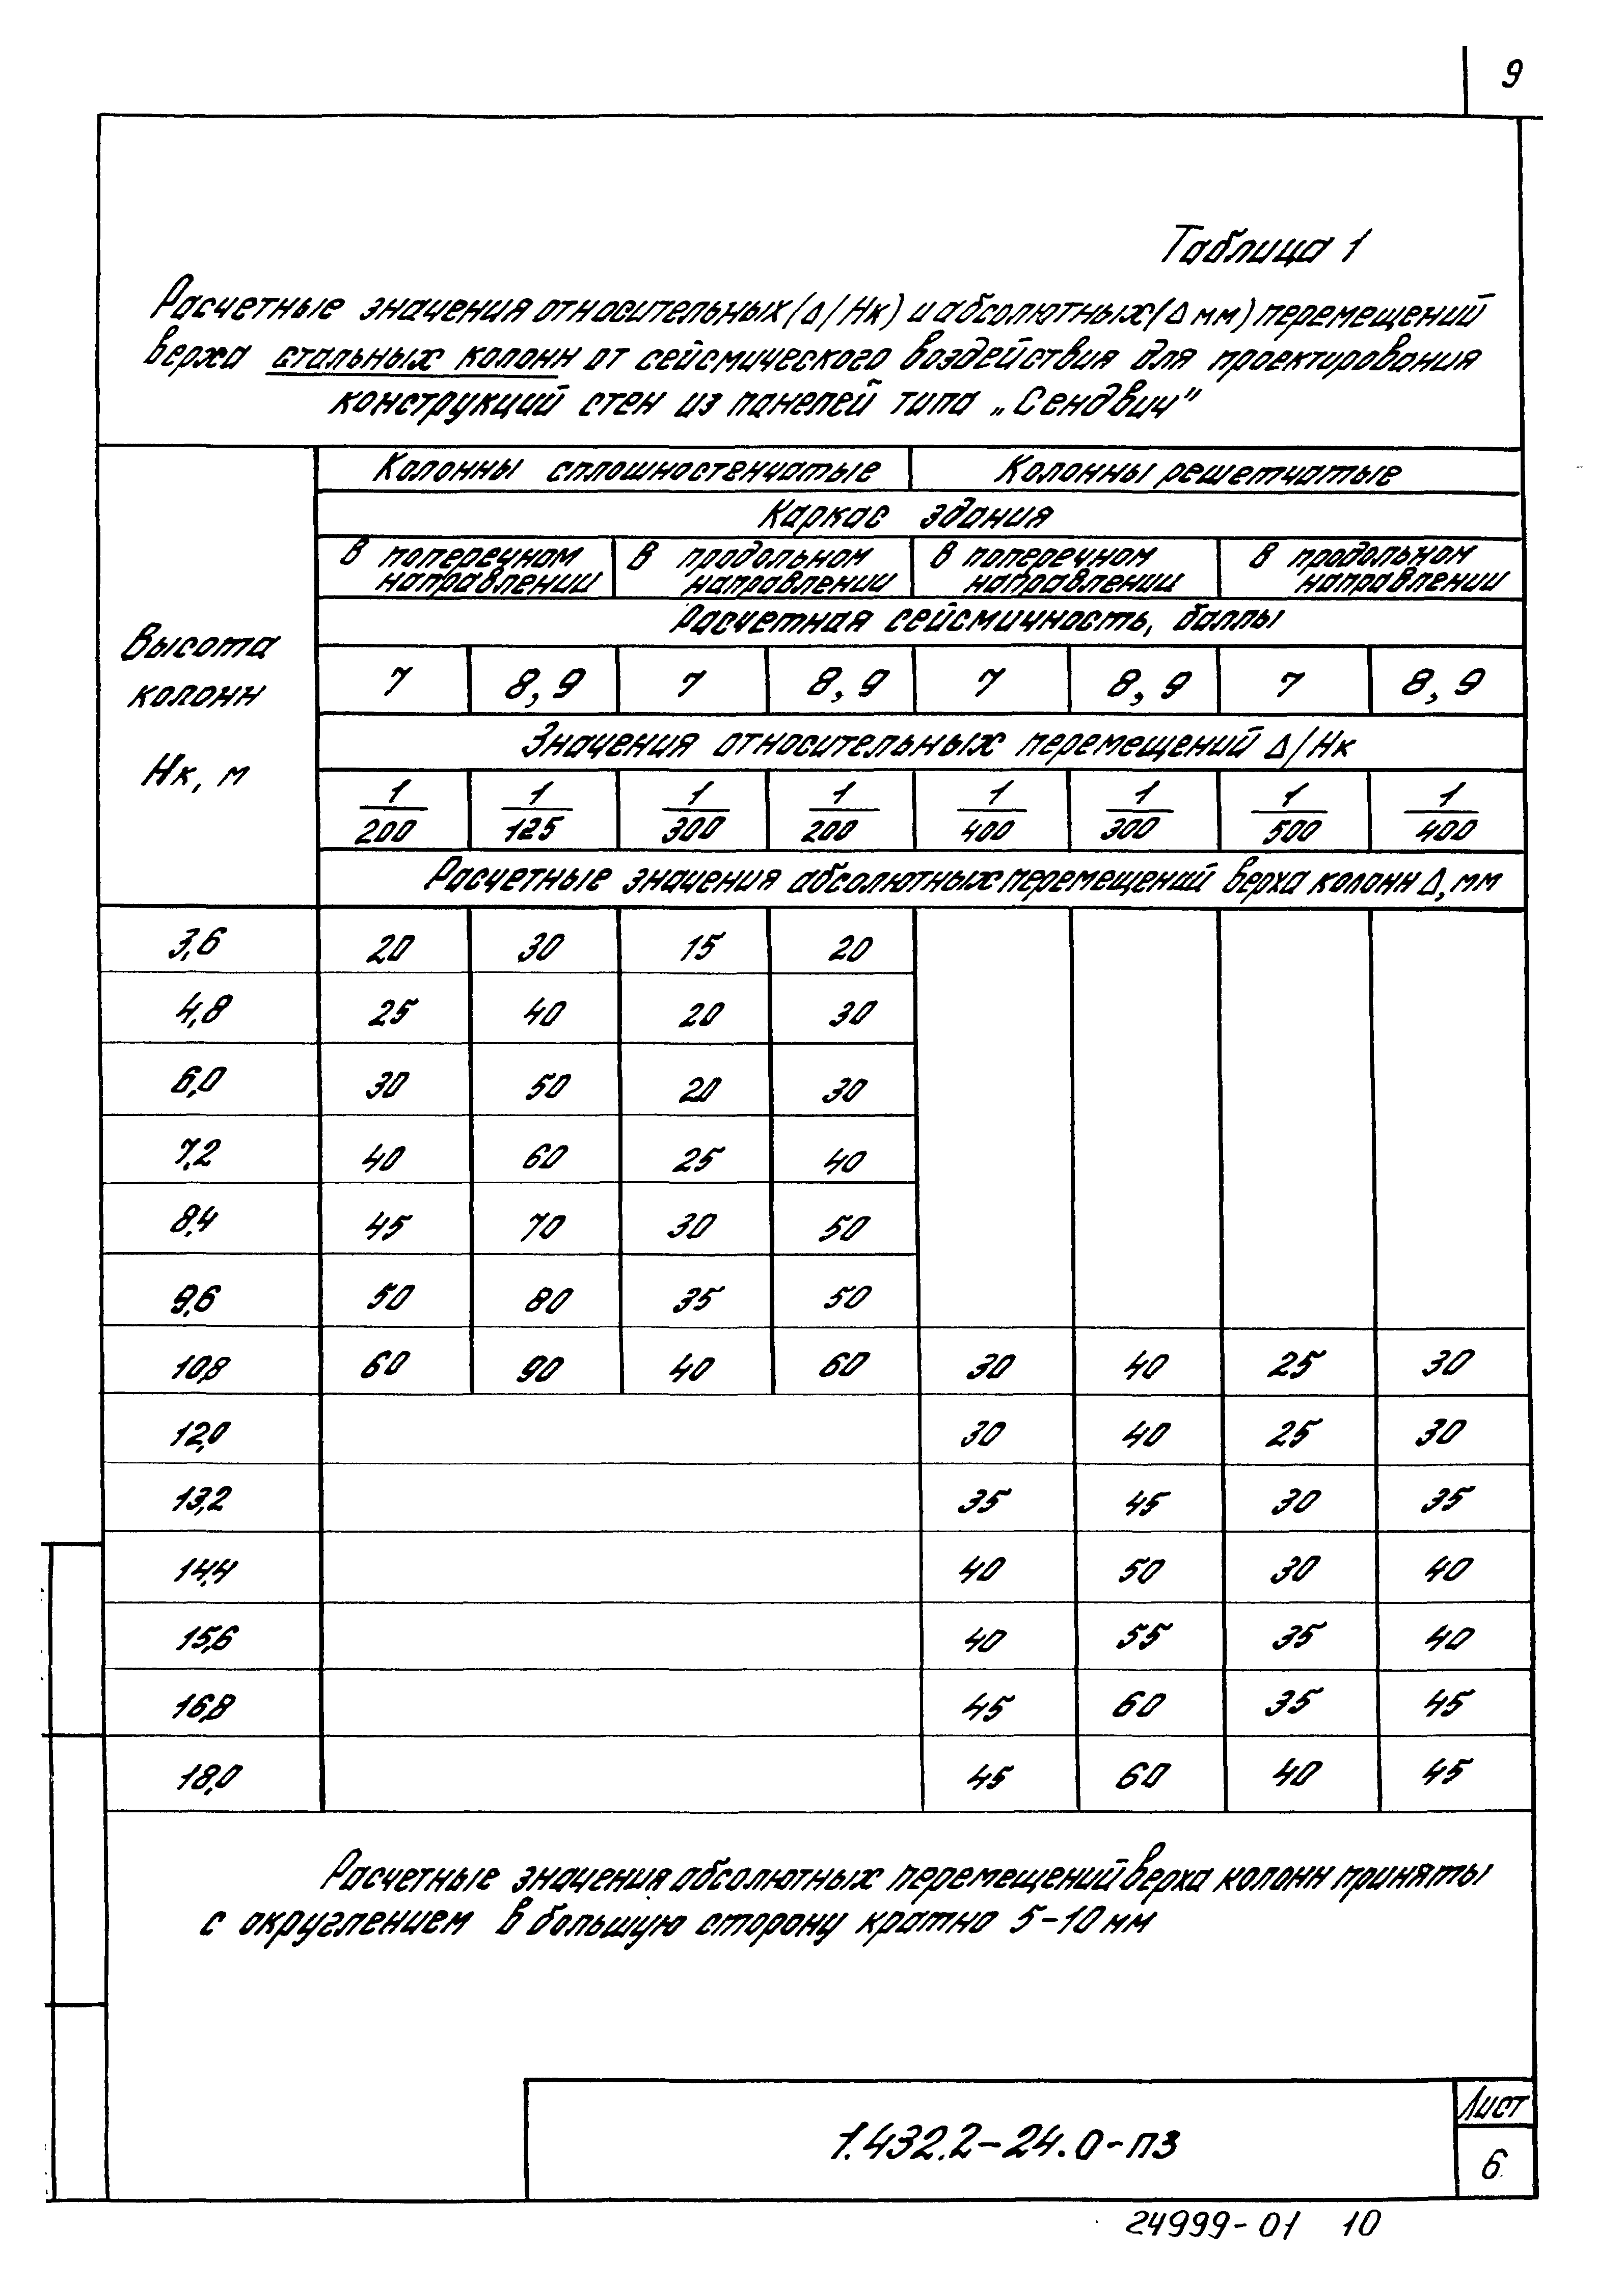 9
Таблица 1
Расчетные значения относительных (Δ/Нк) и абсолютных (Δ мм) перемещений
верха стальных колонн от сейсмического воздействия для проектирования
конструкций стен из панелей типа „Сендвич"
Высота колонн Нк, м
Колонны сплошностенчатые Колонны решетчатые
Каркас здания
в поперечном направлении в продольном направлении в поперечном направлении в продольном направлении
Расчетная сейсмичность, баллы
7 8,9 7 8,9 7 8,9 7 8,9
Значения относительных перемещений Δ/Нк
1/200 1/125 1/300 1/200 1/400 1/300 1/500 1/400
Расчетные значения абсолютных перемещений верха колонн Δ, мм
3,6 20 30 15 20
4,8 25 40 20 30
6,0 30 50 20 30
7,2 40 60 25 40
8,4 45 70 30 50
9,6 50 80 35 50
10,8 60 90 40 60 30 40 25 30
12,0 30 40 25 30
13,2 35 45 30 35
14,4 40 50 30 40
15,6 40 55 35 40
16,8 45 60 35 45
18,0 45 60 40 45
Расчетные значения абсолютных перемещений верха колонн приняты
с округлением в большую сторону кратно 5-10 мм
1.432.2-24.0-ПЗ
Лист
6
24999-01 10